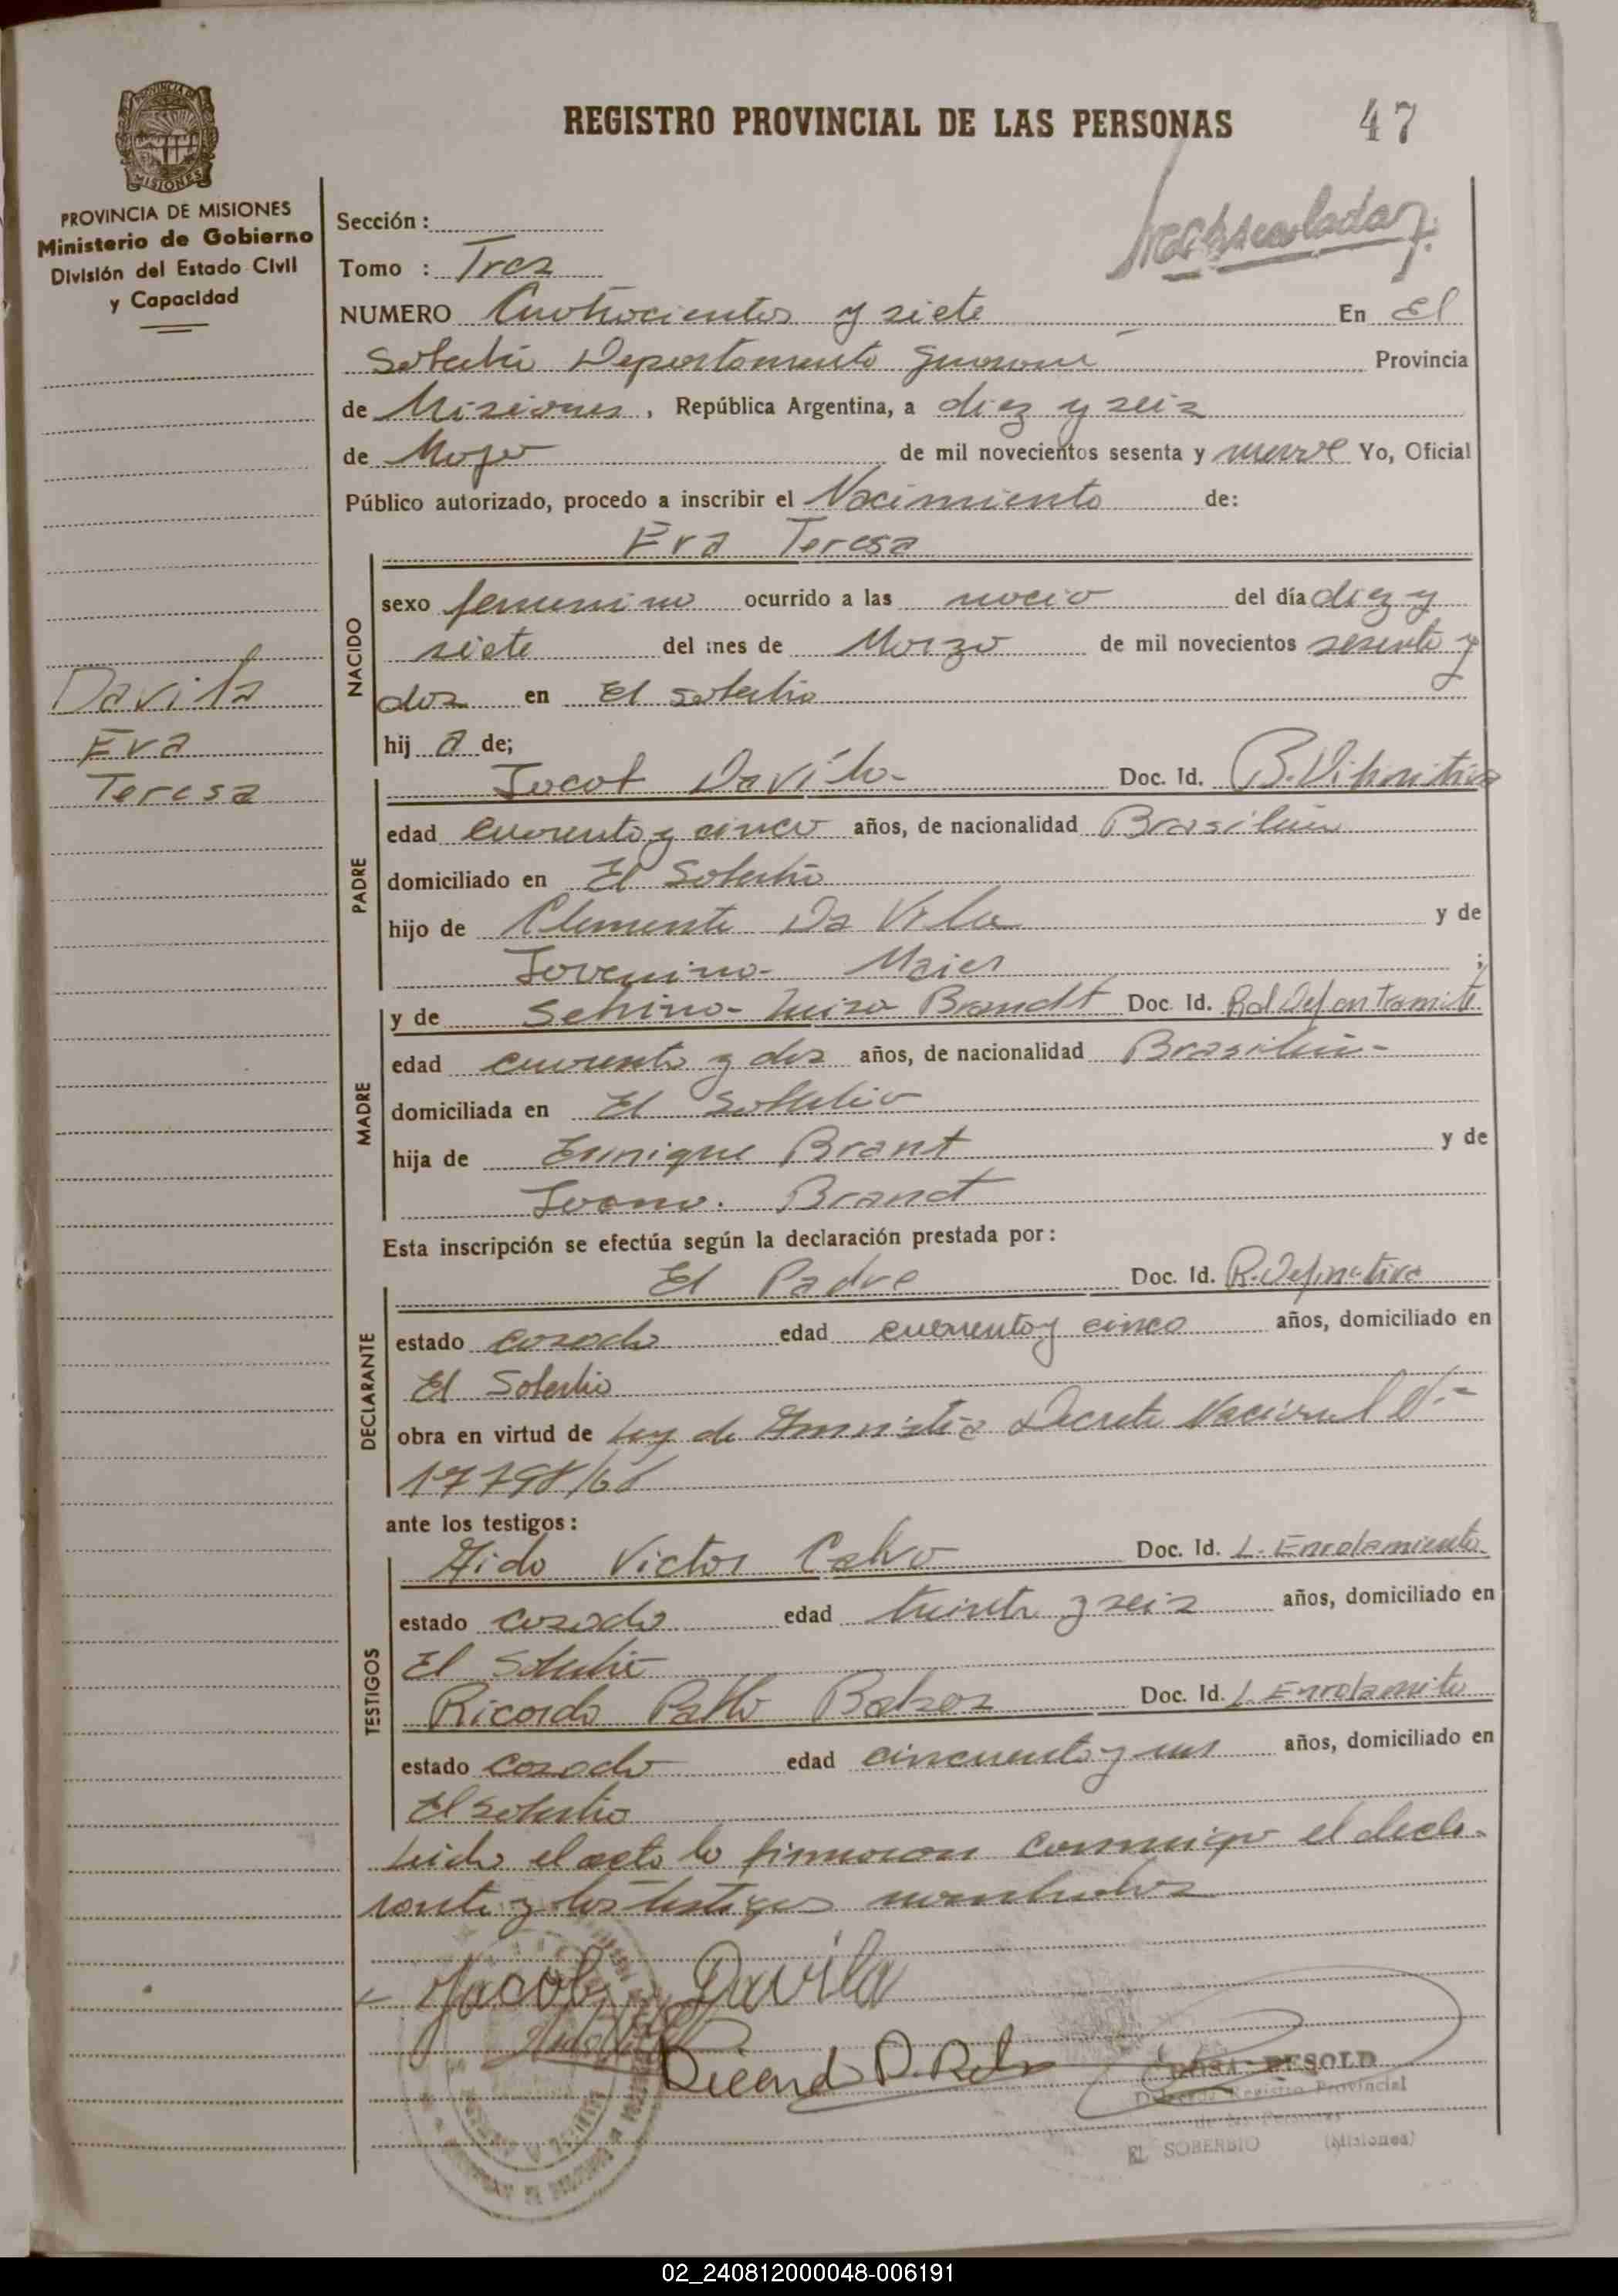 REGISTRO PROVINCIAL DE LAS PERSONAS
47
PROVINCIA DE MISIONES
Ministerio de Gobierno
División del Estado Civil
y Capacidad
Sección :
Tomo : Tres
NUMERO Cuatrocientos y siete En El
Soberbio Departamento Guarani Provincia
de Misiones, República Argentina, a diez y seis
de Mayo de mil novecientos sesenta y nueve Yo, Oficial
Público autorizado, procedo a inscribir el Nacimiento de:
Eva Teresa
NACIDO
sexo femenino ocurrido a las del día diez y
siete del mes de Marzo de mil novecientos sesenta y
dos en El soberbio
hij a de;
Davila
Eva
Teresa
PADRE
Jacob Davila Doc. Id.
edad cuarenta y cinco años, de nacionalidad Brasileña
domiciliado en El Soberbio
hijo de Clemente Da Vila y de
Maier ;
MADRE
y de Luisa Brandt Doc. Id. Rad. Def. en tramite
edad cuarenta y dos años, de nacionalidad Brasileña
domiciliada en El Soberbio
hija de Enrique Brant y de
Juana Brandt
Esta inscripción se efectúa según la declaración prestada por :
DECLARANTE
El Padre Doc. Id. R. Definitiva
estado casado edad cuarenta y cinco años, domiciliado en
El Soberbio
obra en virtud de Ley de Amnistia Decreto Nacional Nº
ante los testigos :
TESTIGOS
Victor Calvo Doc. Id. L. Enrolamiento
estado casado edad treinta y seis años, domiciliado en
El Soberbio
Ricardo Pablo Doc. Id. L. Enrolamito
estado casado edad cincuenta y un años, domiciliado en
El soberbio
Leida el acta la firmaron conmigo el decla-
rante y los testigos nombrados
Jacob Davila
Ricardo P.
Registro Provincial
de las Personas
EL SOBERBIO (Misiones)
02_240812000048-006191